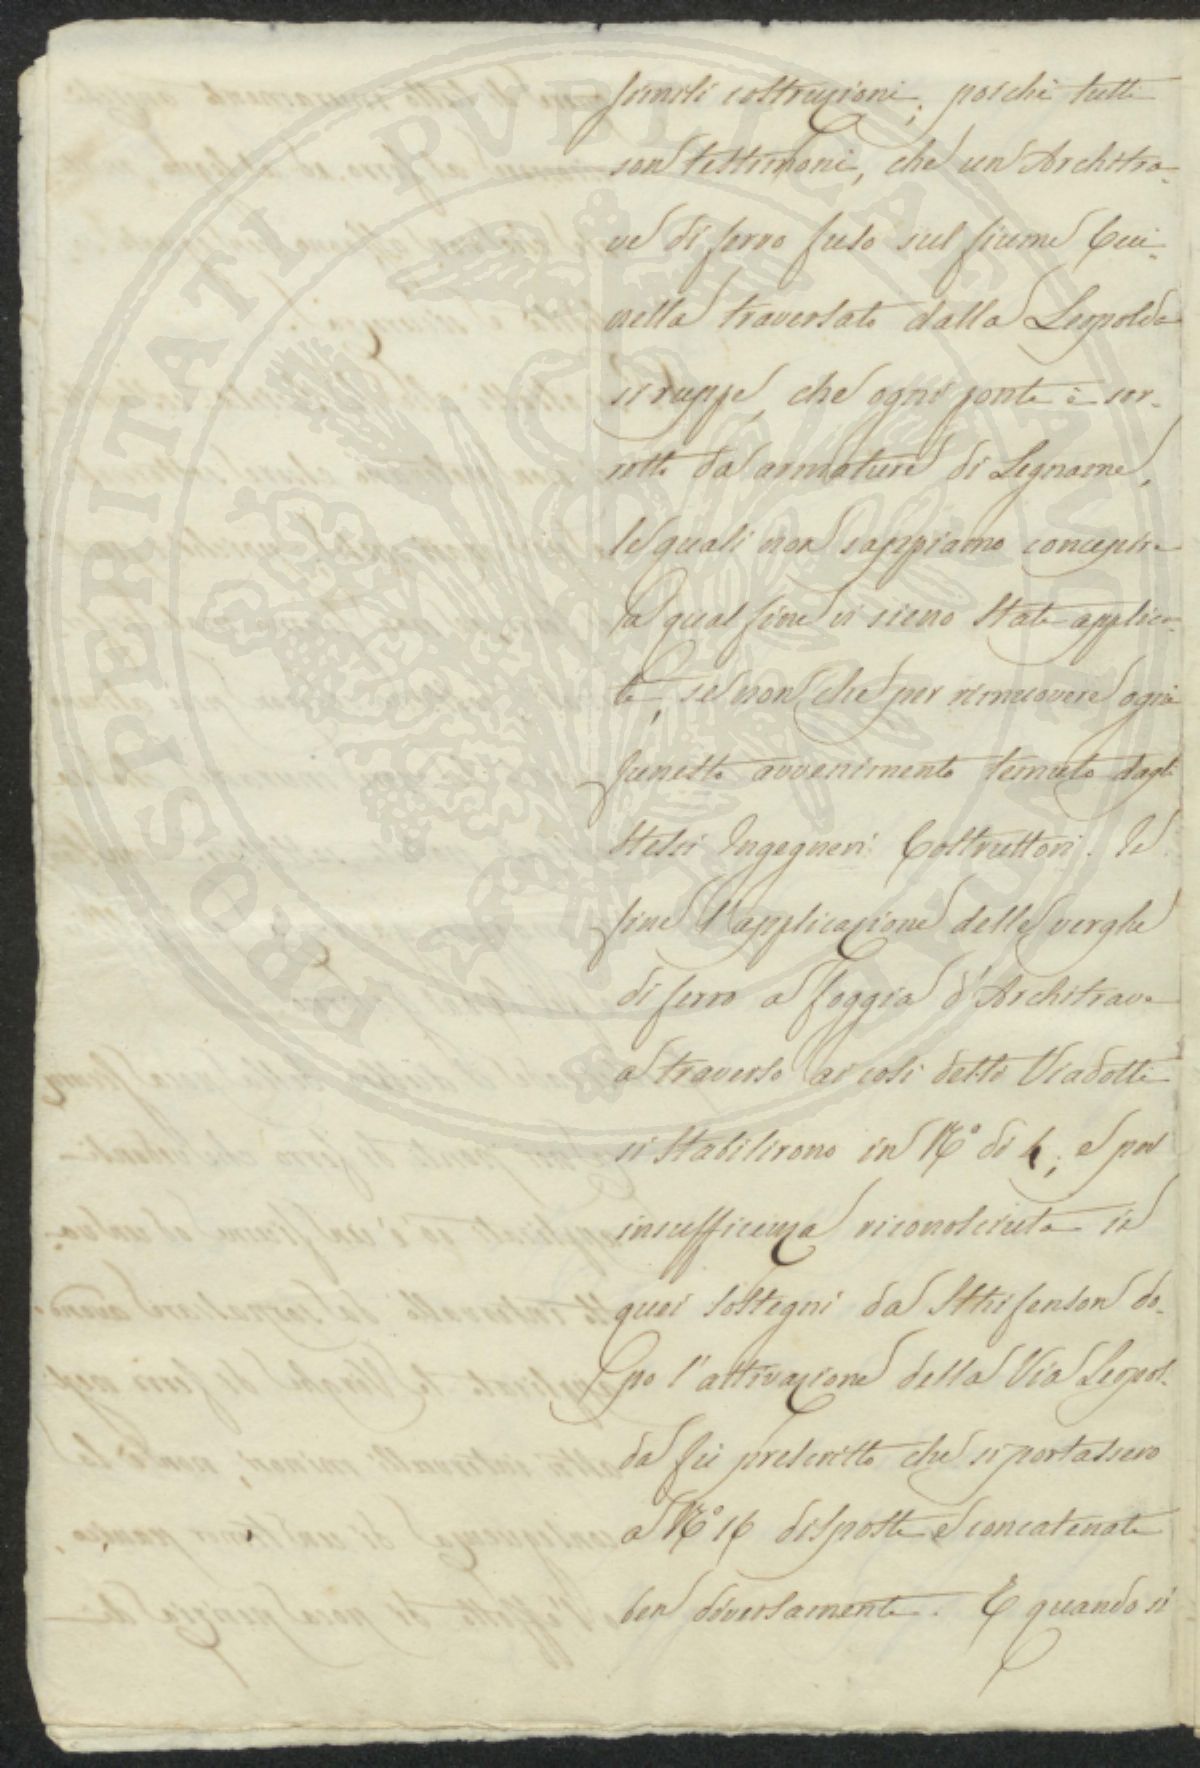 PROSPERITATI PUBLICAE AUGENDAE
simili costruzioni; poichè tutti
son testimoni, che un Architra-
ve di ferro fuso sul fiume Cui-
nella traversato dalla Leopolda
si ruppe, che ogni ponte è sor-
retto da armature di Legname,
le quali non sappiamo concepire
a qual fine vi sieno state applica-
te, se non che per rimuovere ogni
funesto avvenimento temuto dagli
stessi Ingegneri Costruttori. In
fine l'applicazione delle verghe
di ferro a foggia d'Architrave
a traverso ai così detti Viadotti
si stabilirono in N.º di 4; e per
insufficienza riconosciuta in
quei sostegni da Sthifenson do-
po l'attivazione della Via Leopol-
da fù prescritto che si portassero
a N.º 16 disposte e concatenate
ben diversamente. E quando si